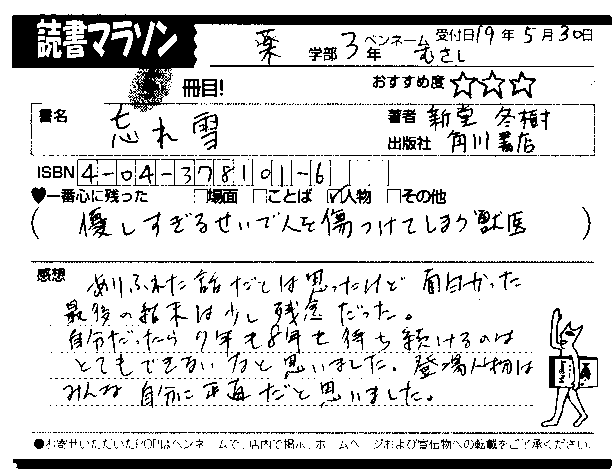 読書マラソン
薬 学部 3年 ペンネーム むさし 受付日 19年5月30日
5冊目! おすすめ度 ☆☆☆
書名 忘れ雪 著者 新堂 冬樹
出版社 角川書店
ISBN 4-04-378101-6
♥一番心に残った □場面 □ことば ☑人物 □その他
(優しすぎるせいで人を傷つけてしまう獣医)
感想 ありふれた話だとは思ったけど 面白かった
最後の結末は少し残念だった。
自分だったら 7年も8年も待ち続けるのは
とてもできないなと思いました。登場人物は
みんな 自分に正直だと思いました。
●お寄せいただいたPOPはペンネームで、店内で掲示、ホームページおよび宣伝物への転載をご了承ください。